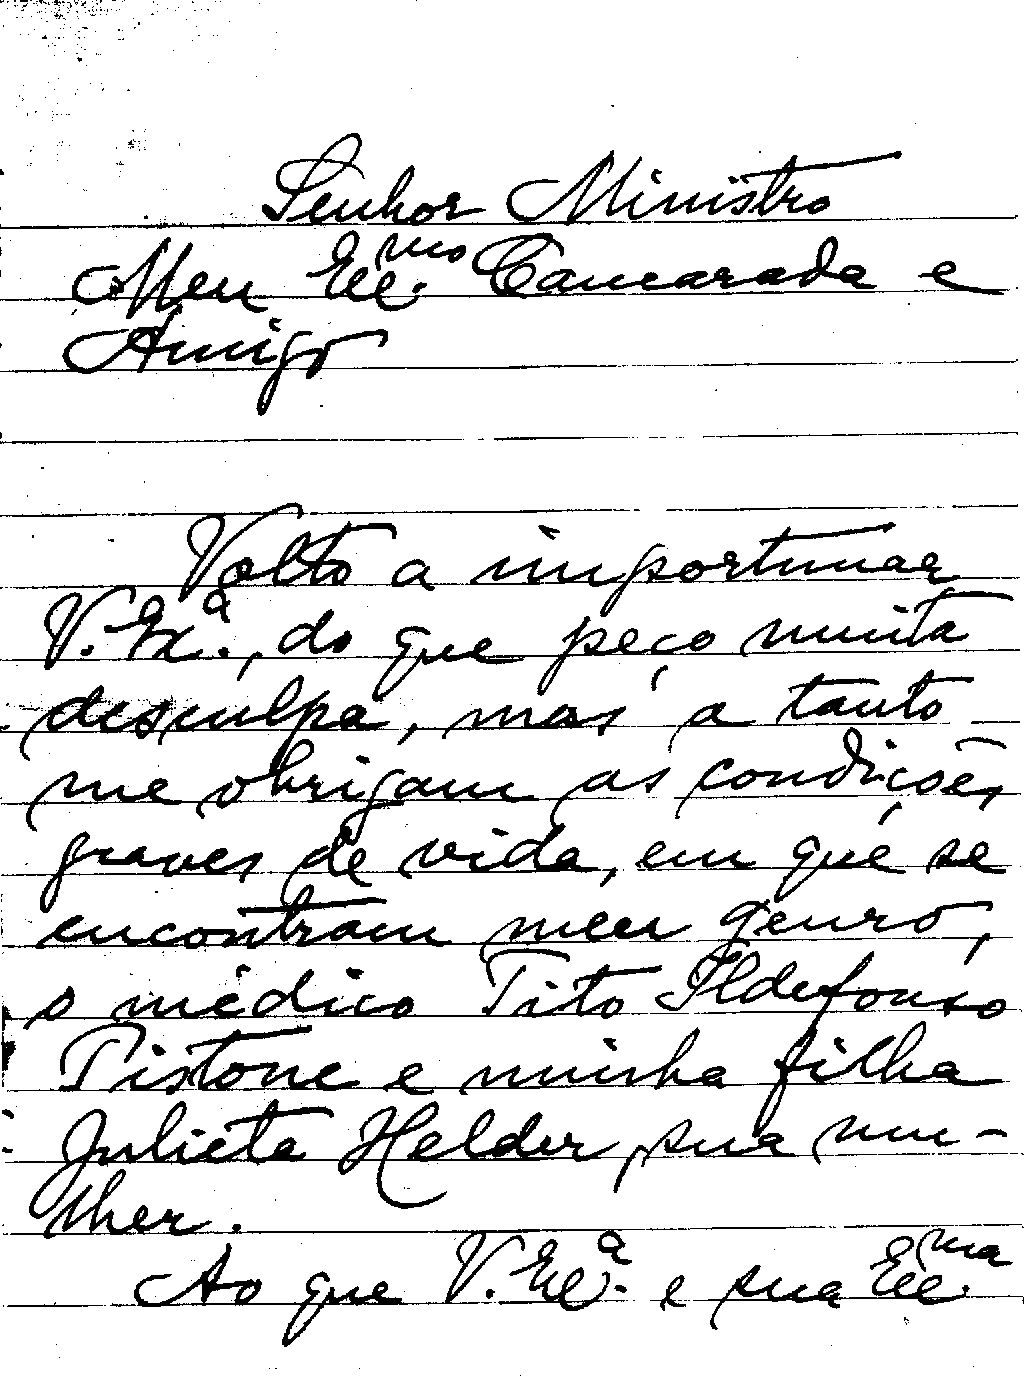 Senhor Ministro
Meu Exc.mo Camarada e
Amigo
Volto a importunar
V. Ex.a, do que peço muita
desculpa, mas a tanto
me obrigam as condições
graves de vida, em que se
encontram meu genro,
o médico Tito Ildefonso
Pistone e minha filha
Julieta Helder, sua mu-
lher.
Ao que V. Exc.a e sua Exc.ma